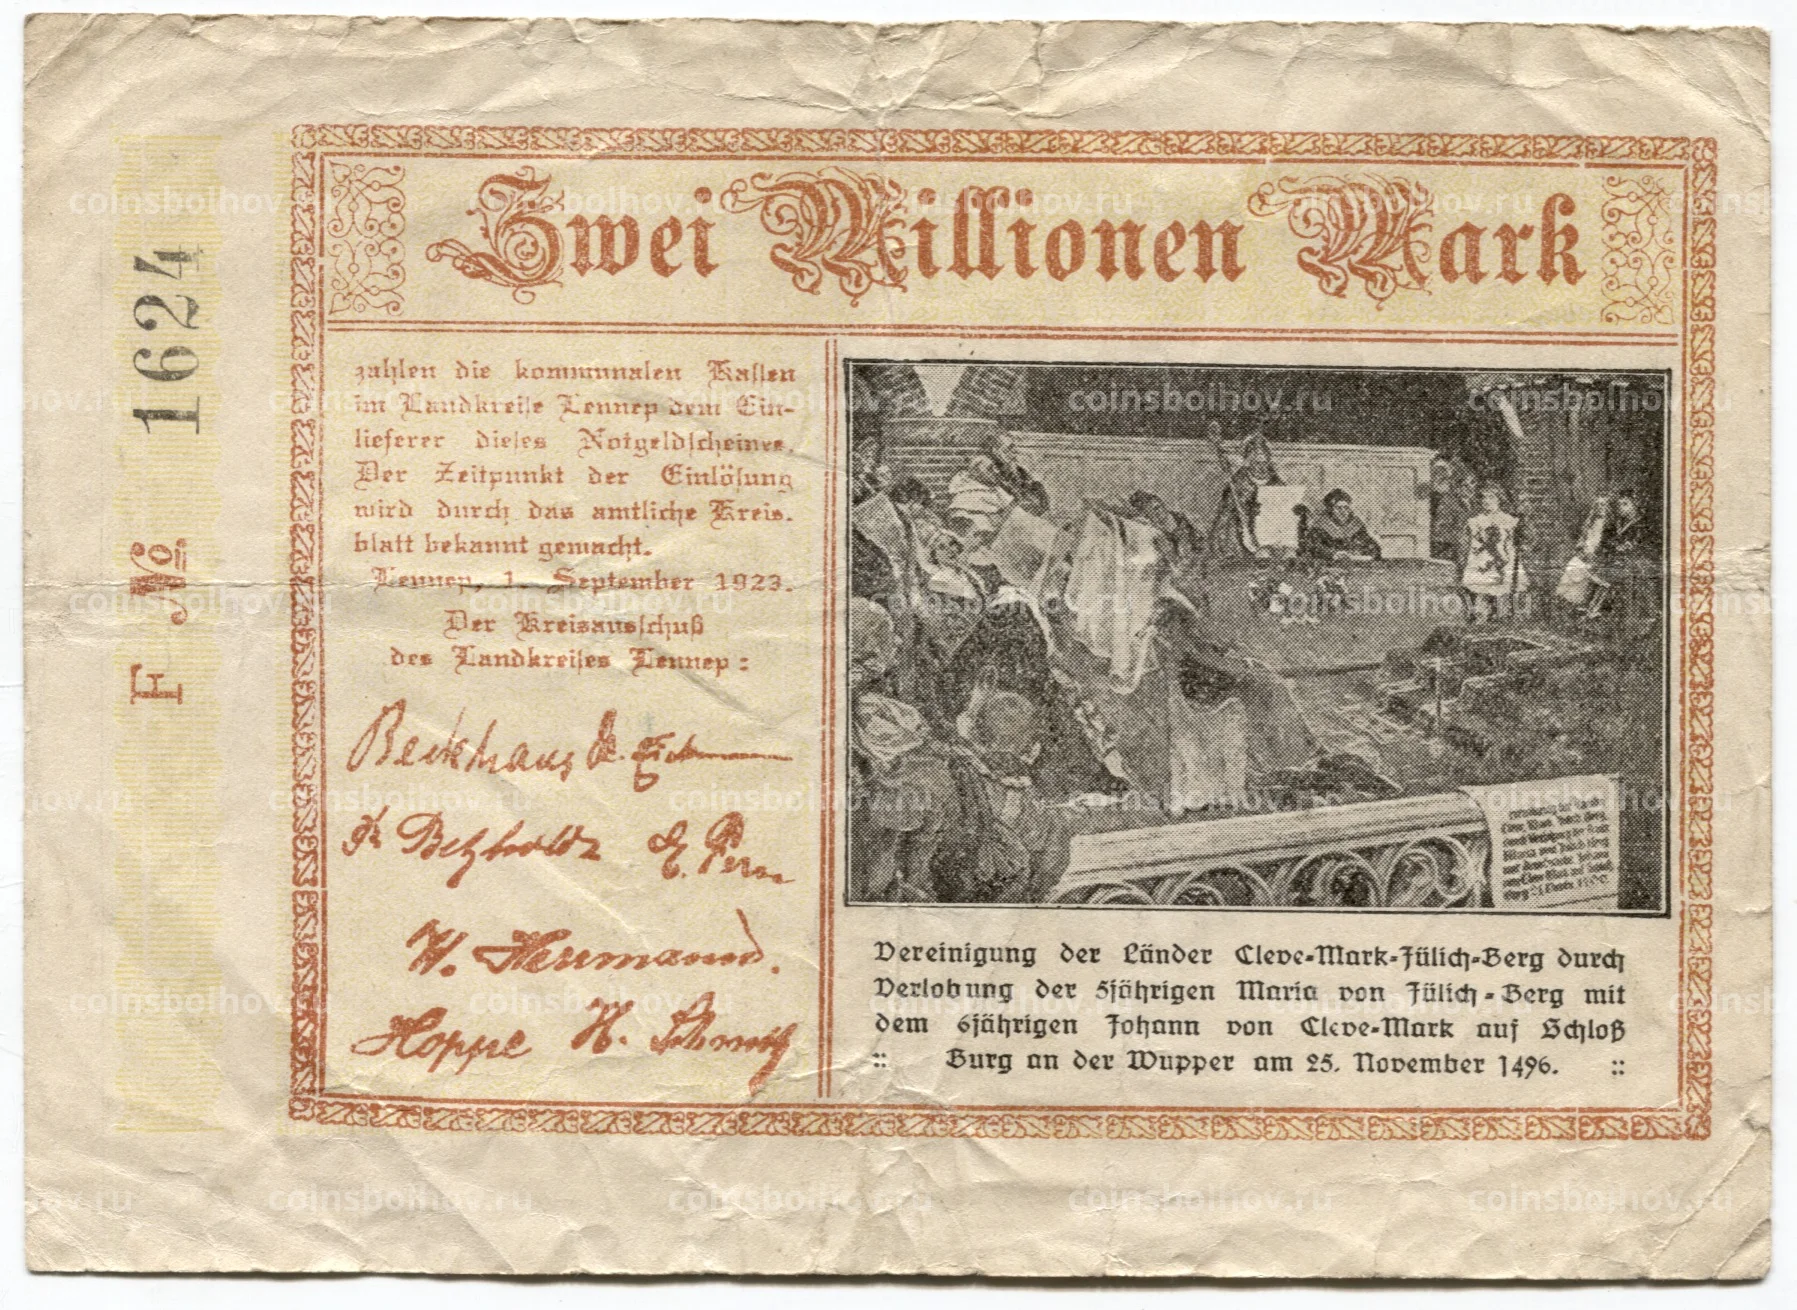 Zwei Millionen Mark
F № 1624
zahlen die kommunalen Kassen
im Landkreise Lennep dem Ein-
lieferer dieses Notgeldscheines.
Der Zeitpunkt der Einlösung
wird durch das amtliche Kreis-
blatt bekannt gemacht.
Lennep, 1. September 1923.
Der Kreisausschuß
des Landkreises Lennep:
Beckhaus
W. Hermanns.
Hoppe
Vereinigung der Länder Cleve-Mark-Jülich-Berg durch
Verlobung der 5jährigen Maria von Jülich-Berg mit
dem 6jährigen Johann von Cleve-Mark auf Schloß
:: Burg an der Wupper am 25. November 1496. ::
coinsbolhov.ru